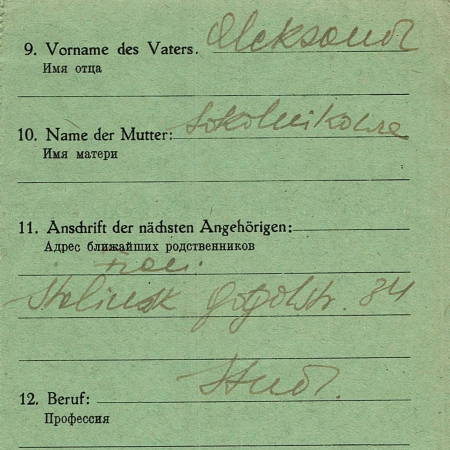 9. Vorname des Vaters. Aleksandr
Имя отца
10. Name der Mutter: Sokolnikowa
Имя матери
11. Anschrift der nächsten Angehörigen:
Адрес ближайших родственников
Stalinsk Gogolstr. 84
12. Beruf: Stud.
Профессия